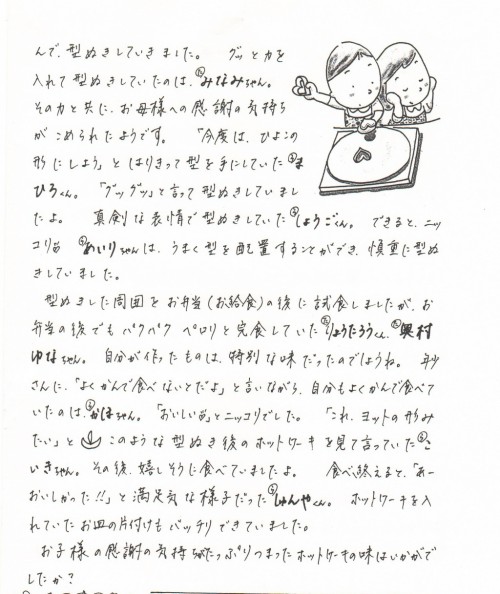 んで、型ぬきしていきました。 グッと力を
入れて型ぬきしていたのは、みなみちゃん。
その力と共に、お母様への感謝の気持ち
がこめられたようです。 「今度は、ひよこの
形にしよう」とはりきって型を手にしていたま
ひろくん。「グッグッ」と言って型ぬきしていまし
たよ。 真剣な表情で型ぬきしていたしょうごくん。できると、ニッ
コリ。あいりちゃんは、うまく型を配置することができ、慎重に型ぬ
きしていました。
型ぬきした周囲をお弁当(お給食)の後に試食しましたが、お
弁当の後でもパクパク ペロリと完食していたりょうたろうくん、奥村
ゆなちゃん。自分が作ったものは、特別な味だったのでしょうね。
さんに、「よくかんで食べないとだよ」と言いながら、自分もよくかんで食べて
いたのは、かほちゃん。「おいしいね」とニッコリでした。「これ、ヨットの形み
たい」と このような型ぬき後のホットケーキを見て言っていたこ
いきちゃん。その後、嬉しそうに食べていましたよ。 食べ終えると、「あー
おいしかった!!」と満足気な様子だったしゅんやくん。 ホットケーキを入
れていたお皿の片付けもバッチリできていました。
お子様の感謝の気持ちがたっぷりつまったホットケーキの味はいかがで
したか?